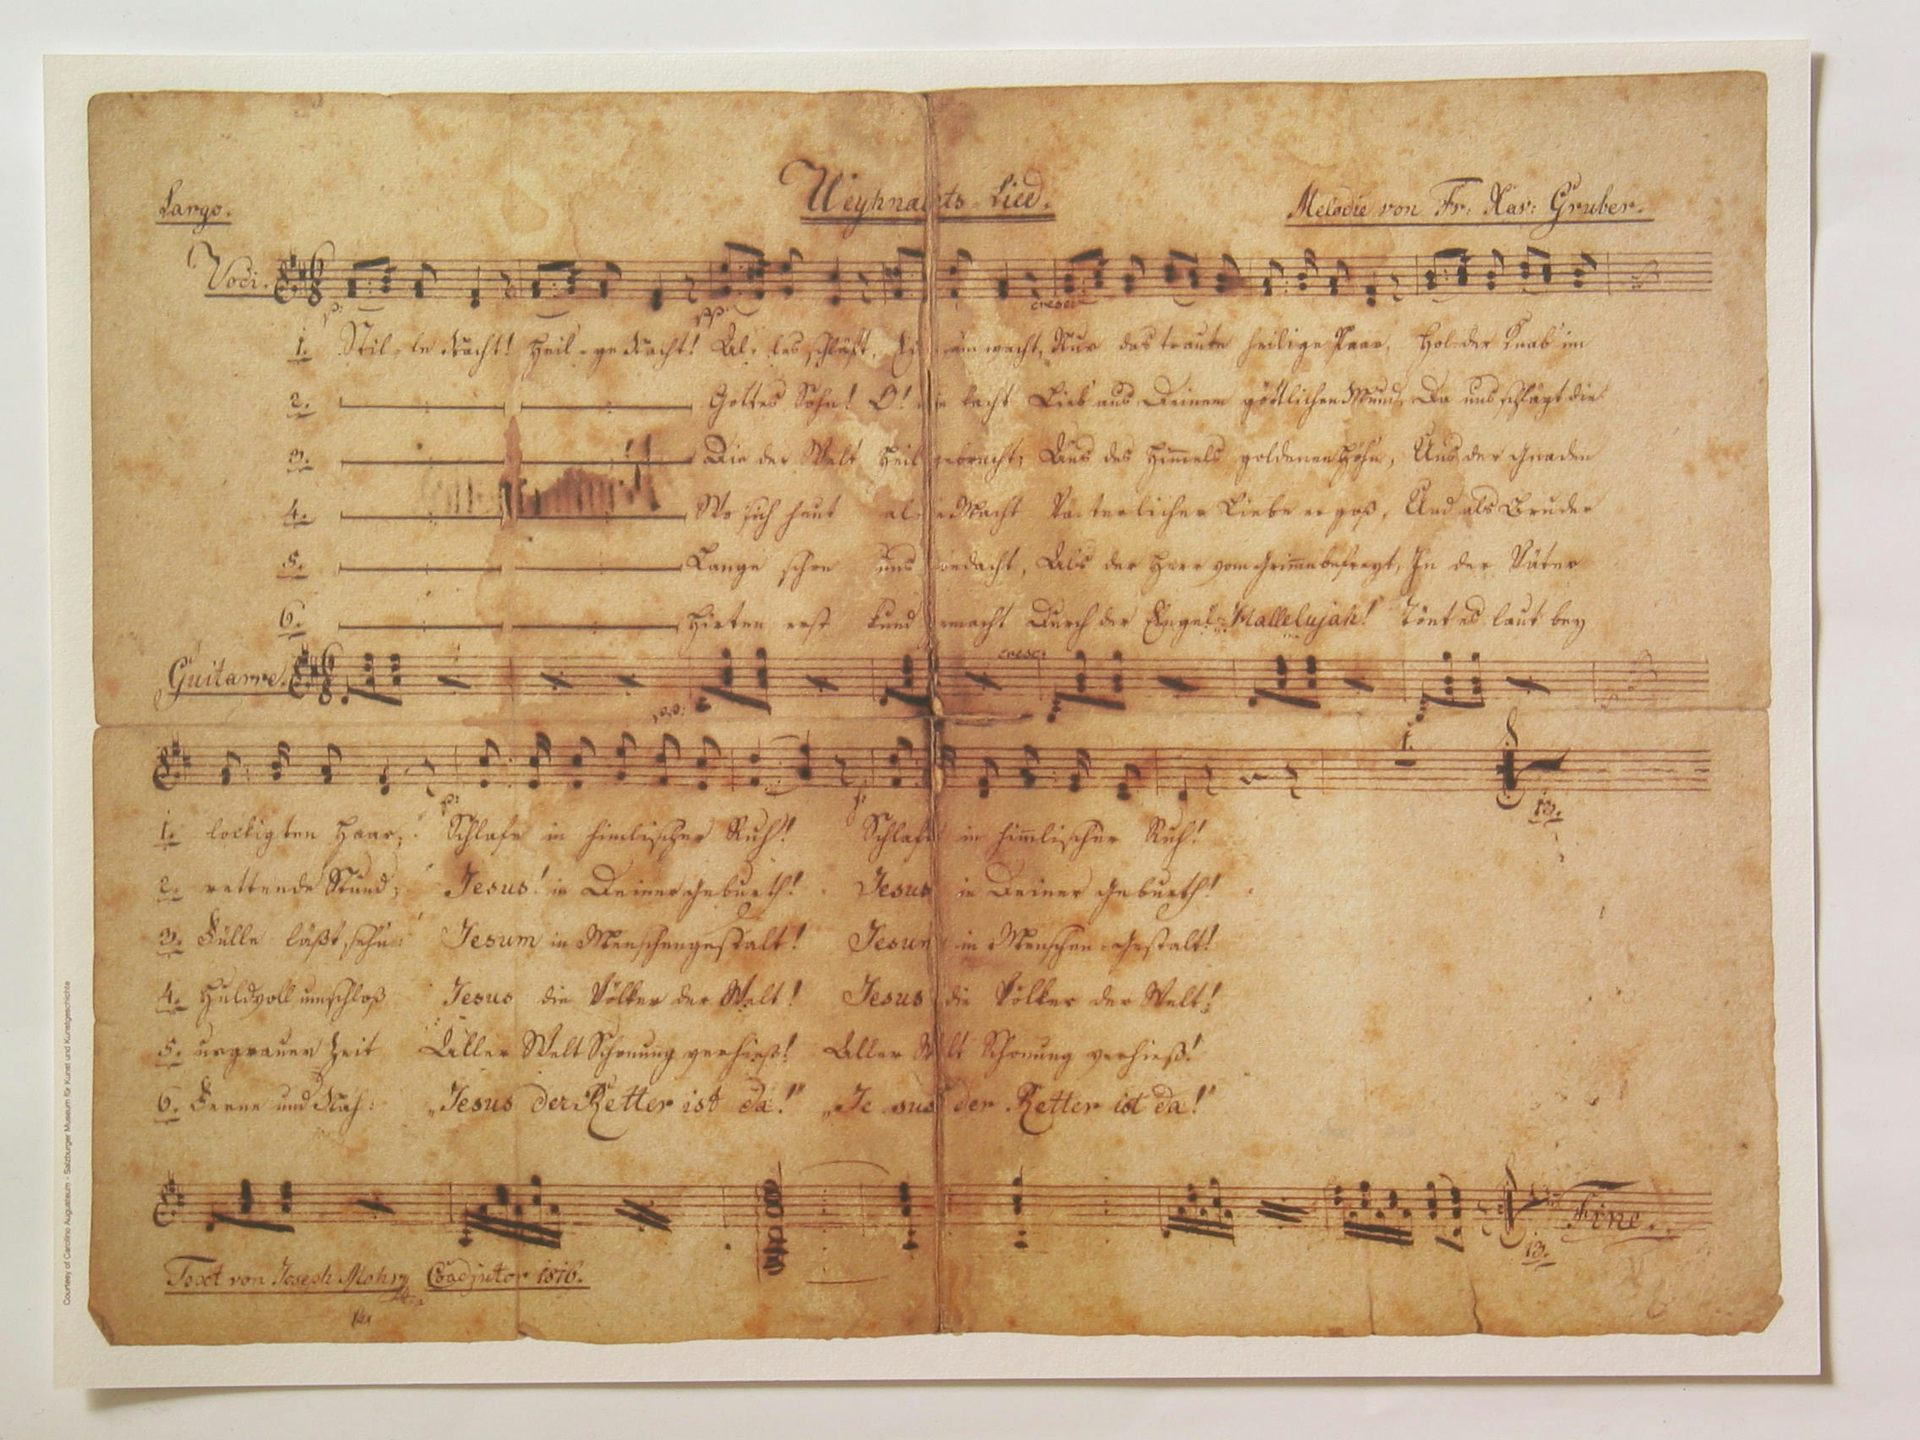 Largo.
Weyhnachts-Lied.
Melodie von Fr: Xav: Gruber.
Voci.
p: pp: cresc:
1. Stil-le Nacht! Heil-ge Nacht! Al-les schläft, Einsam wacht, Nur das traute heilige Paar, Holder Knab' im
2. Gottes Sohn! O! wie lacht Lieb' aus Deinem göttlichen Mund, Da uns schlägt die
3. Die der Welt Heil gebracht; Aus des Himmels goldenen Höhn, Uns der Gnaden
4. Wo sich heut alle Macht Väterlicher Liebe ergoß, Und als Bruder
5. Lange schon uns bedacht, Als der Herr vom Grimme befreyt, In der Väter
6. Hirten erst kund gemacht Durch der Engel Hallelujah! Tönt es laut bey
Guitarre.
pp: cresc:
1.
p: p: 13.
1. lockigten Haar; Schlafe in himlischer Ruh! Schlafe in himlischer Ruh!
2. rettende Stund; Jesus! in Deiner Geburth! Jesus in Deiner Geburth!
3. Fülle läßt sehn: Jesum in Menschengestalt! Jesum in Menschen-Gestalt!
4. Huldvoll umschloß Jesus die Völker der Welt! Jesus die Völker der Welt!
5. urgrauer Zeit Aller Welt Schonung verhieß! Aller Welt Schonung verhieß!
6. Ferne und Nah: „Jesus der Retter ist da!" „Jesus der Retter ist da!"
13. Fine.
Text von Joseph Mohr Coadjutor 1816.
Courtesy of Carolino Augusteum - Salzburger Museum für Kunst und Kunstgeschichte